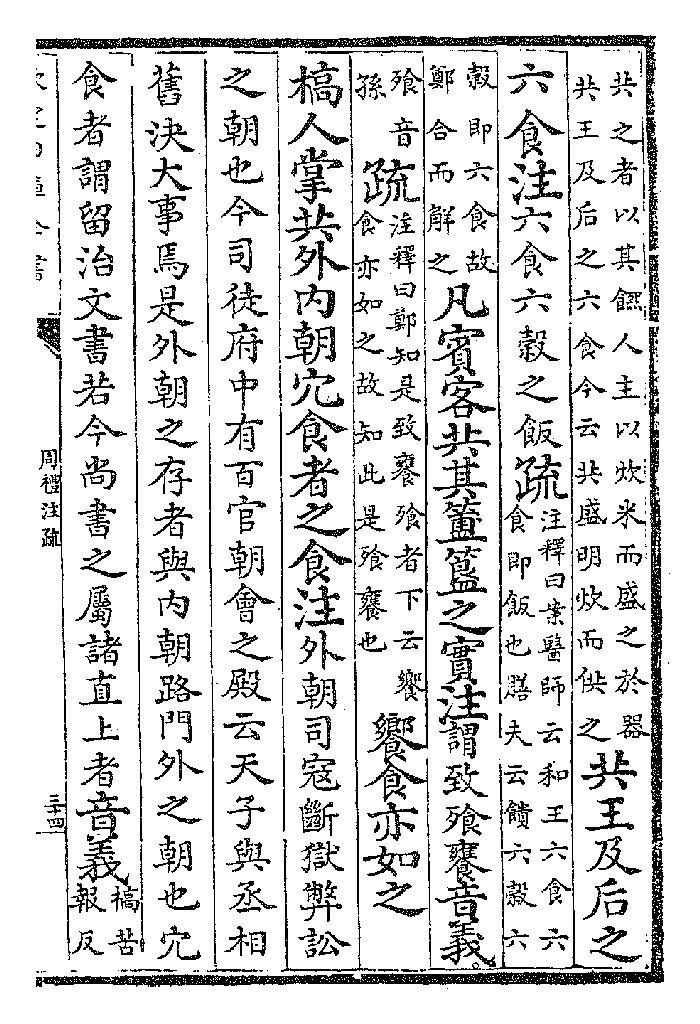 共之者以其饎人主以炊米而盛之於器
共王及后之六食今云共盛明炊而供之
共王及后之
六食注六食六穀之飯疏
注釋曰案醫師云和王六食六
食即飯也膳夫云饋六穀六
穀即六食故
鄭合而解之
凡賓客共其簠簋之實注謂致飱饔音義
飱音
孫
疏
注釋曰鄭知是致饔飱者下云饗
食亦如之故知此是飱饔也
饗食亦如之
槁人掌共外内朝宂食者之食注外朝司寇斷獄弊訟
之朝也今司徒府中有百官朝會之殿云天子與丞相
舊決大事焉是外朝之存者與内朝路門外之朝也宂
食者謂留治文書若今尚書之屬諸直上者音義
槁苦
報反
周禮注疏
三十四